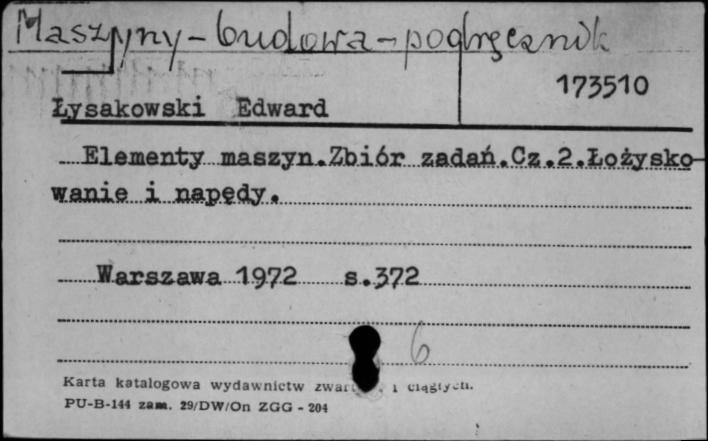 Maszyny - budowa - podręcznik
173510
Łysakowski Edward
Elementy maszyn.Zbiór zadań.Cz.2.Łożysko-
wanie i napędy.
Warszawa 1972 s.372
6
Karta katalogowa wydawnictw i ciągłych.
PU-B-144 zam. 29/DW/On ZGG - 204